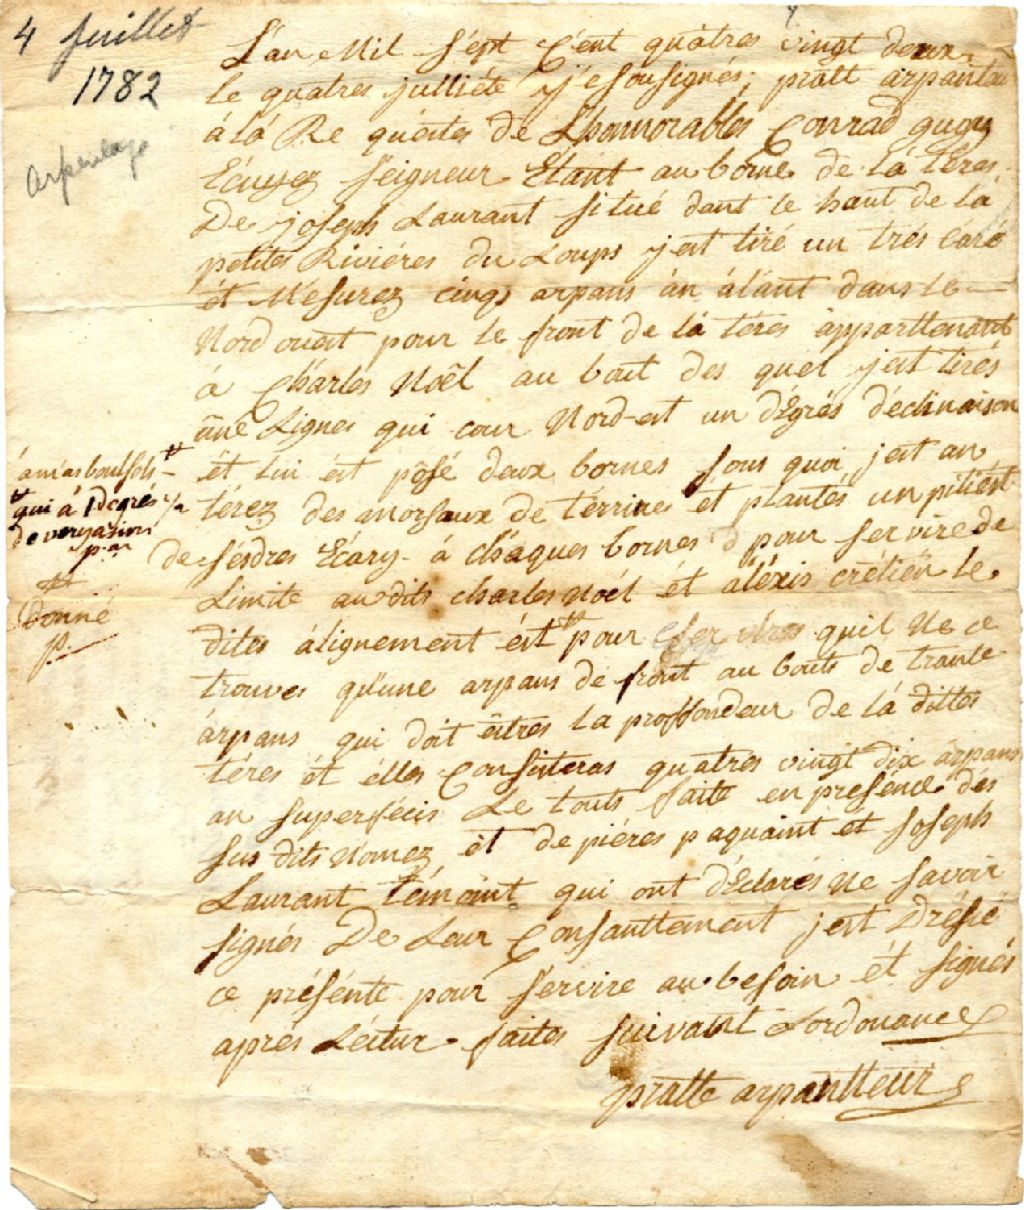 4 Juillet
1782
arpentage
L'an Mil Sept Cent quatres vingt deux
le quatres julliéte j'e Sousignés, pratt arpanteu
à là Re quéites de Lhonnorables Conrad gugy
Ecuyez Seigneur Etant au borne de là téres
De joseph Laurant situé dant le haut de la
petites Riviéres du Loups jest tiré un tres caré
ét Mesurez cinqs arpans àn àlànt dans le
Nord ouest pour le front de là téres appartenant
à Charles Noêl au bout des quel jest tirés
une Lignes qui cour Nord-est un dEgrés déclinaison
ét lui ést pôsé deux bornes sous quoi jest an
térez des morsaux de térrines ét plantés un piliést
de Sésdres Ecary à chaques bornes pour servire de
Limite audits charles Noél ét aléxis crétiên le
dites àlignement ést pour quil Ne ce
trouves qu'une arpans de front au bouts de trante
àrpans qui doit êitres la proffondeur de là dittes
téres ét élles Consisteras quatres vingt dix àrpans
an superfécis Le touts faite en présénce des
sus dits Nomez ét de piéres paquaint et Joseph
Laurant témoint qui ont dÉclarés Ne savoir
signés De Leur Consanttement jest Dréssé
ce présénte pour servire au besoin ét signés
aprés Léctur faites suivant Lordonance
pratte arpantteur
qui à 1 Degrés
de veryasion
Donné
p.